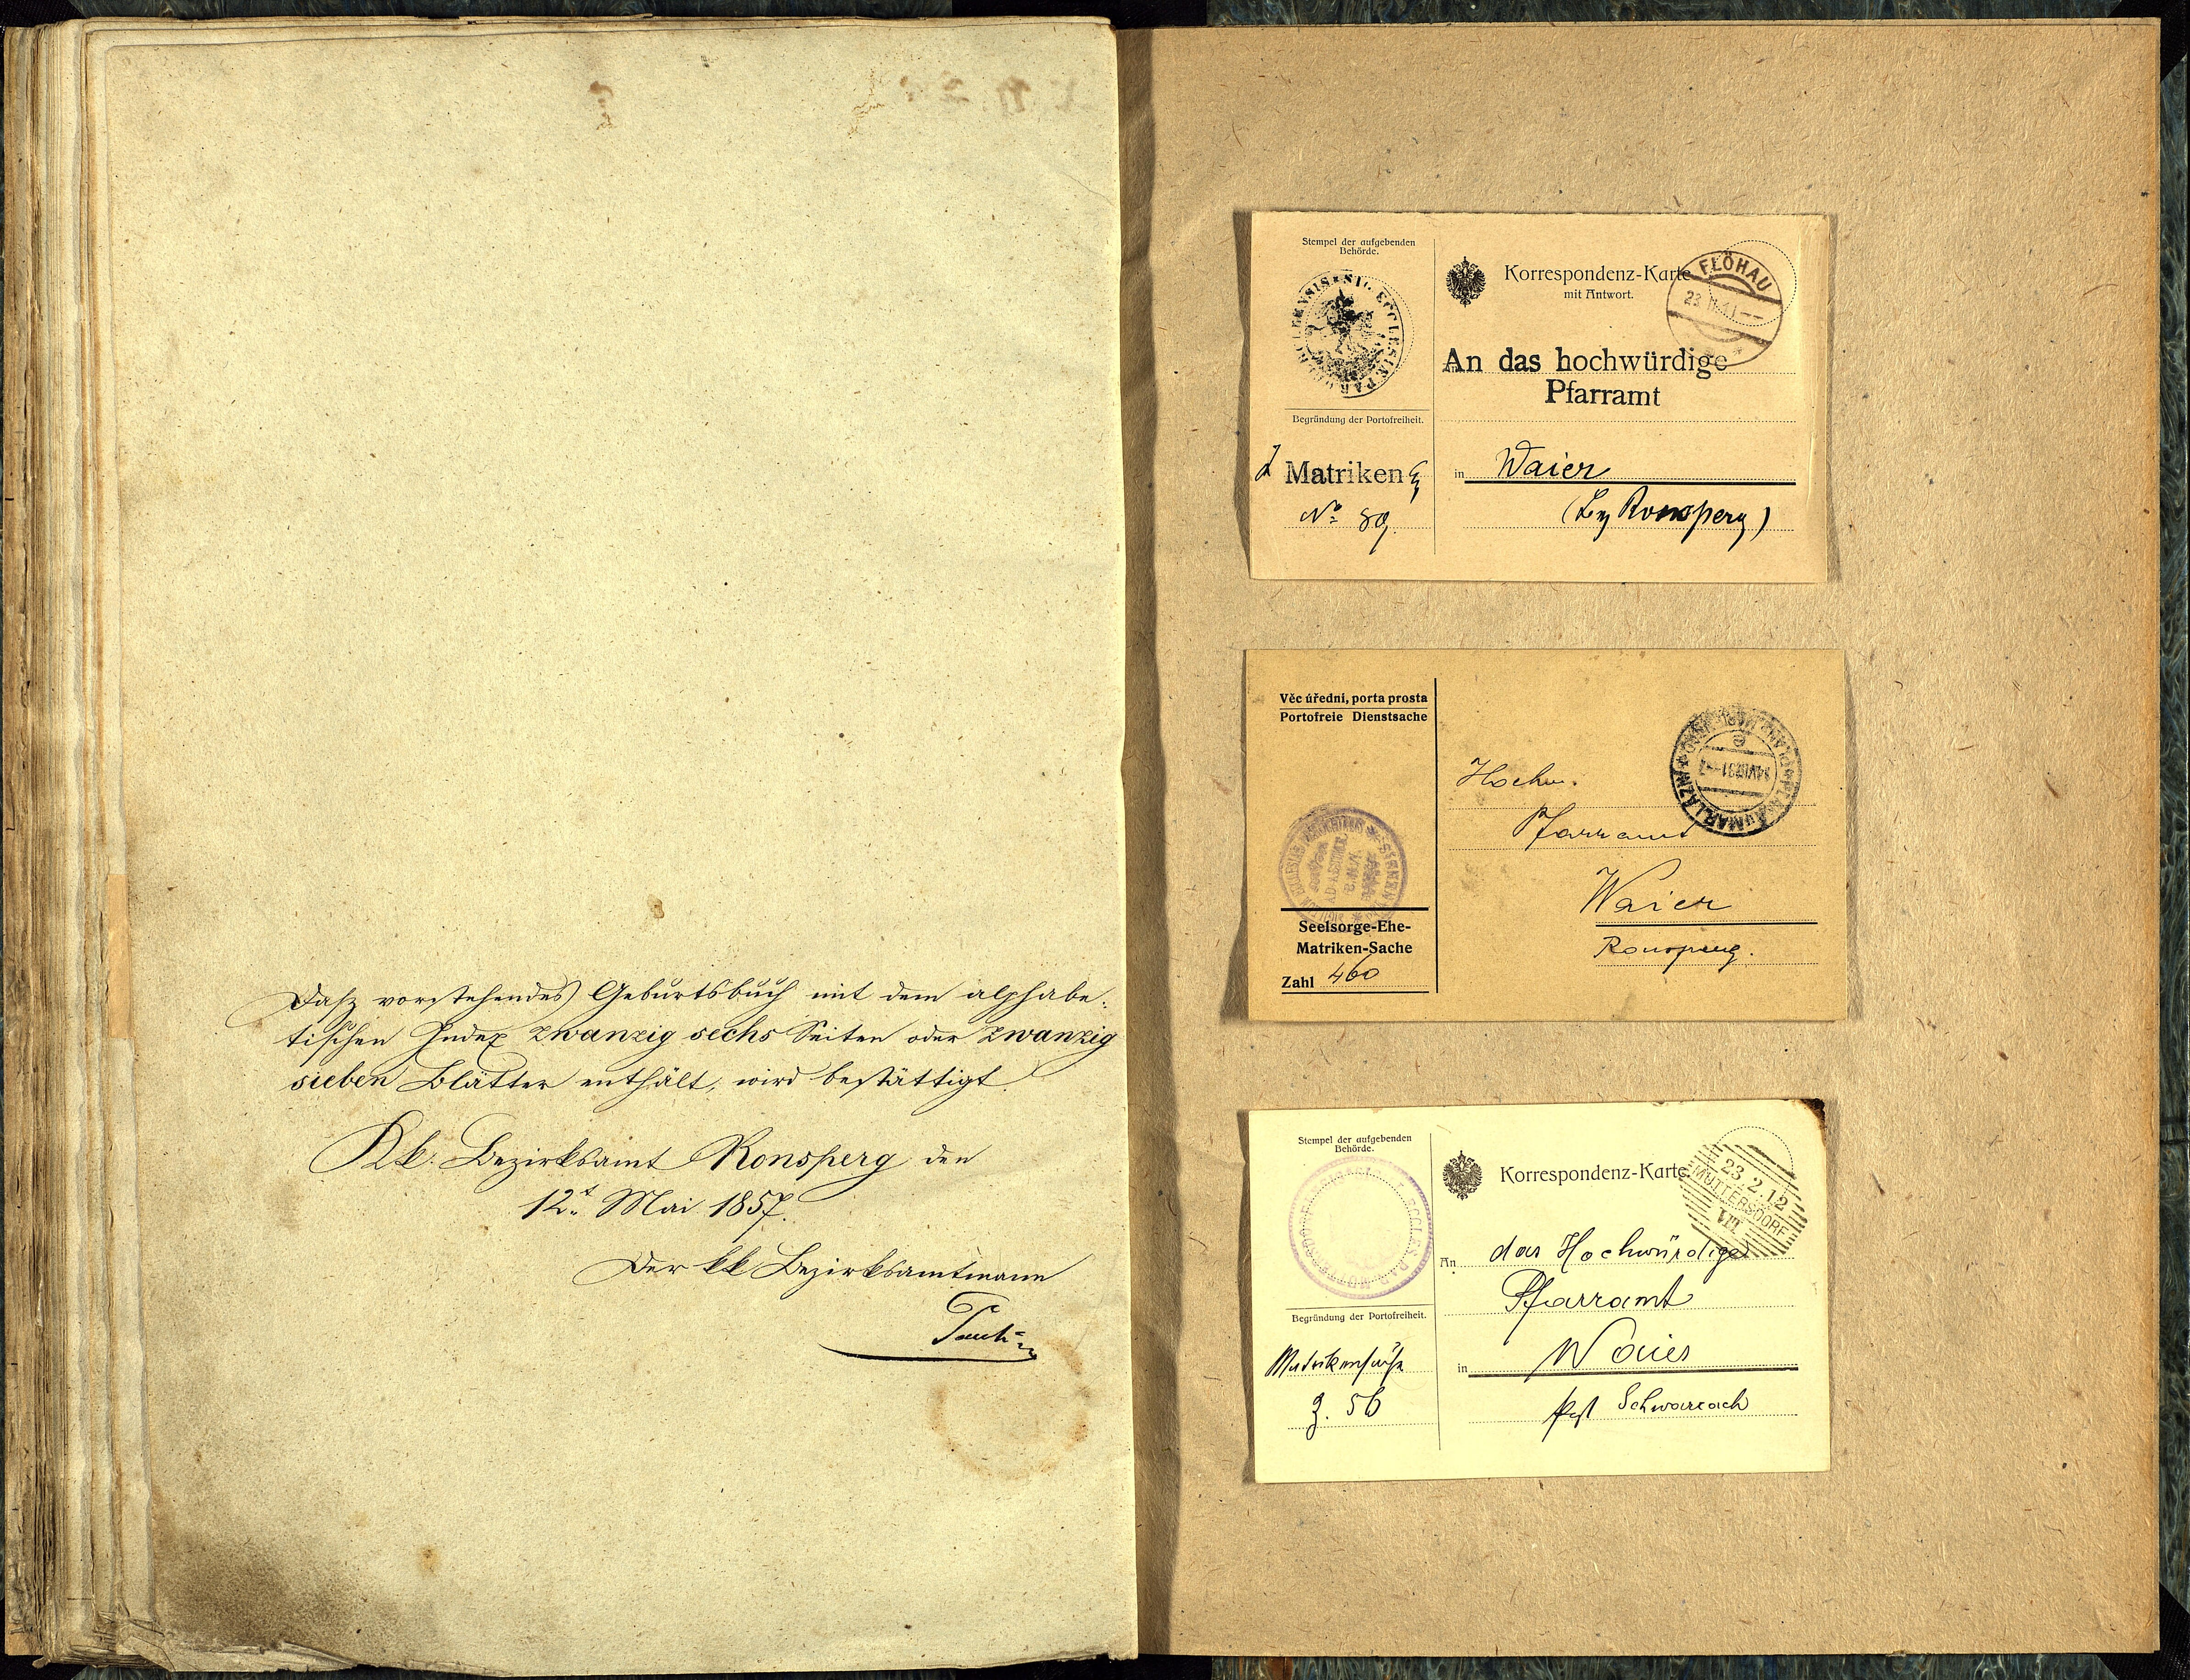 Dasz vorstehendes Geburtsbuch mit dem alphabe-
tischen Index zwanzig sechs Seiten oder zwanzig
sieben Blätter enthält, wird bestättigt.
Kk. Bezirksamt Ronsperg den
12t. Mai 1857.
Der kk Bezirksamtmann
Stempel der aufgebenden
Behörde.
Korrespondenz-Karte
mit Antwort.
FLÖHAU
An das hochwürdige
Pfarramt
Begründung der Portofreiheit.
Matriken
No 89.
in Waier
(Bz Ronsperg)
Věc úřední, porta prosta
Portofreie Dienstsache
Hochw.
Pfarramt
Waier
Ronsperg.
Seelsorge-Ehe-
Matriken-Sache
Zahl 460
Stempel der aufgebenden
Behörde.
Korrespondenz-Karte
23.2.12
MUTTERSDORF
VII
An das Hochwürdige
Pfarramt
Begründung der Portofreiheit.
Matrikensache
Z. 56
in Waier
Post Schwarzach